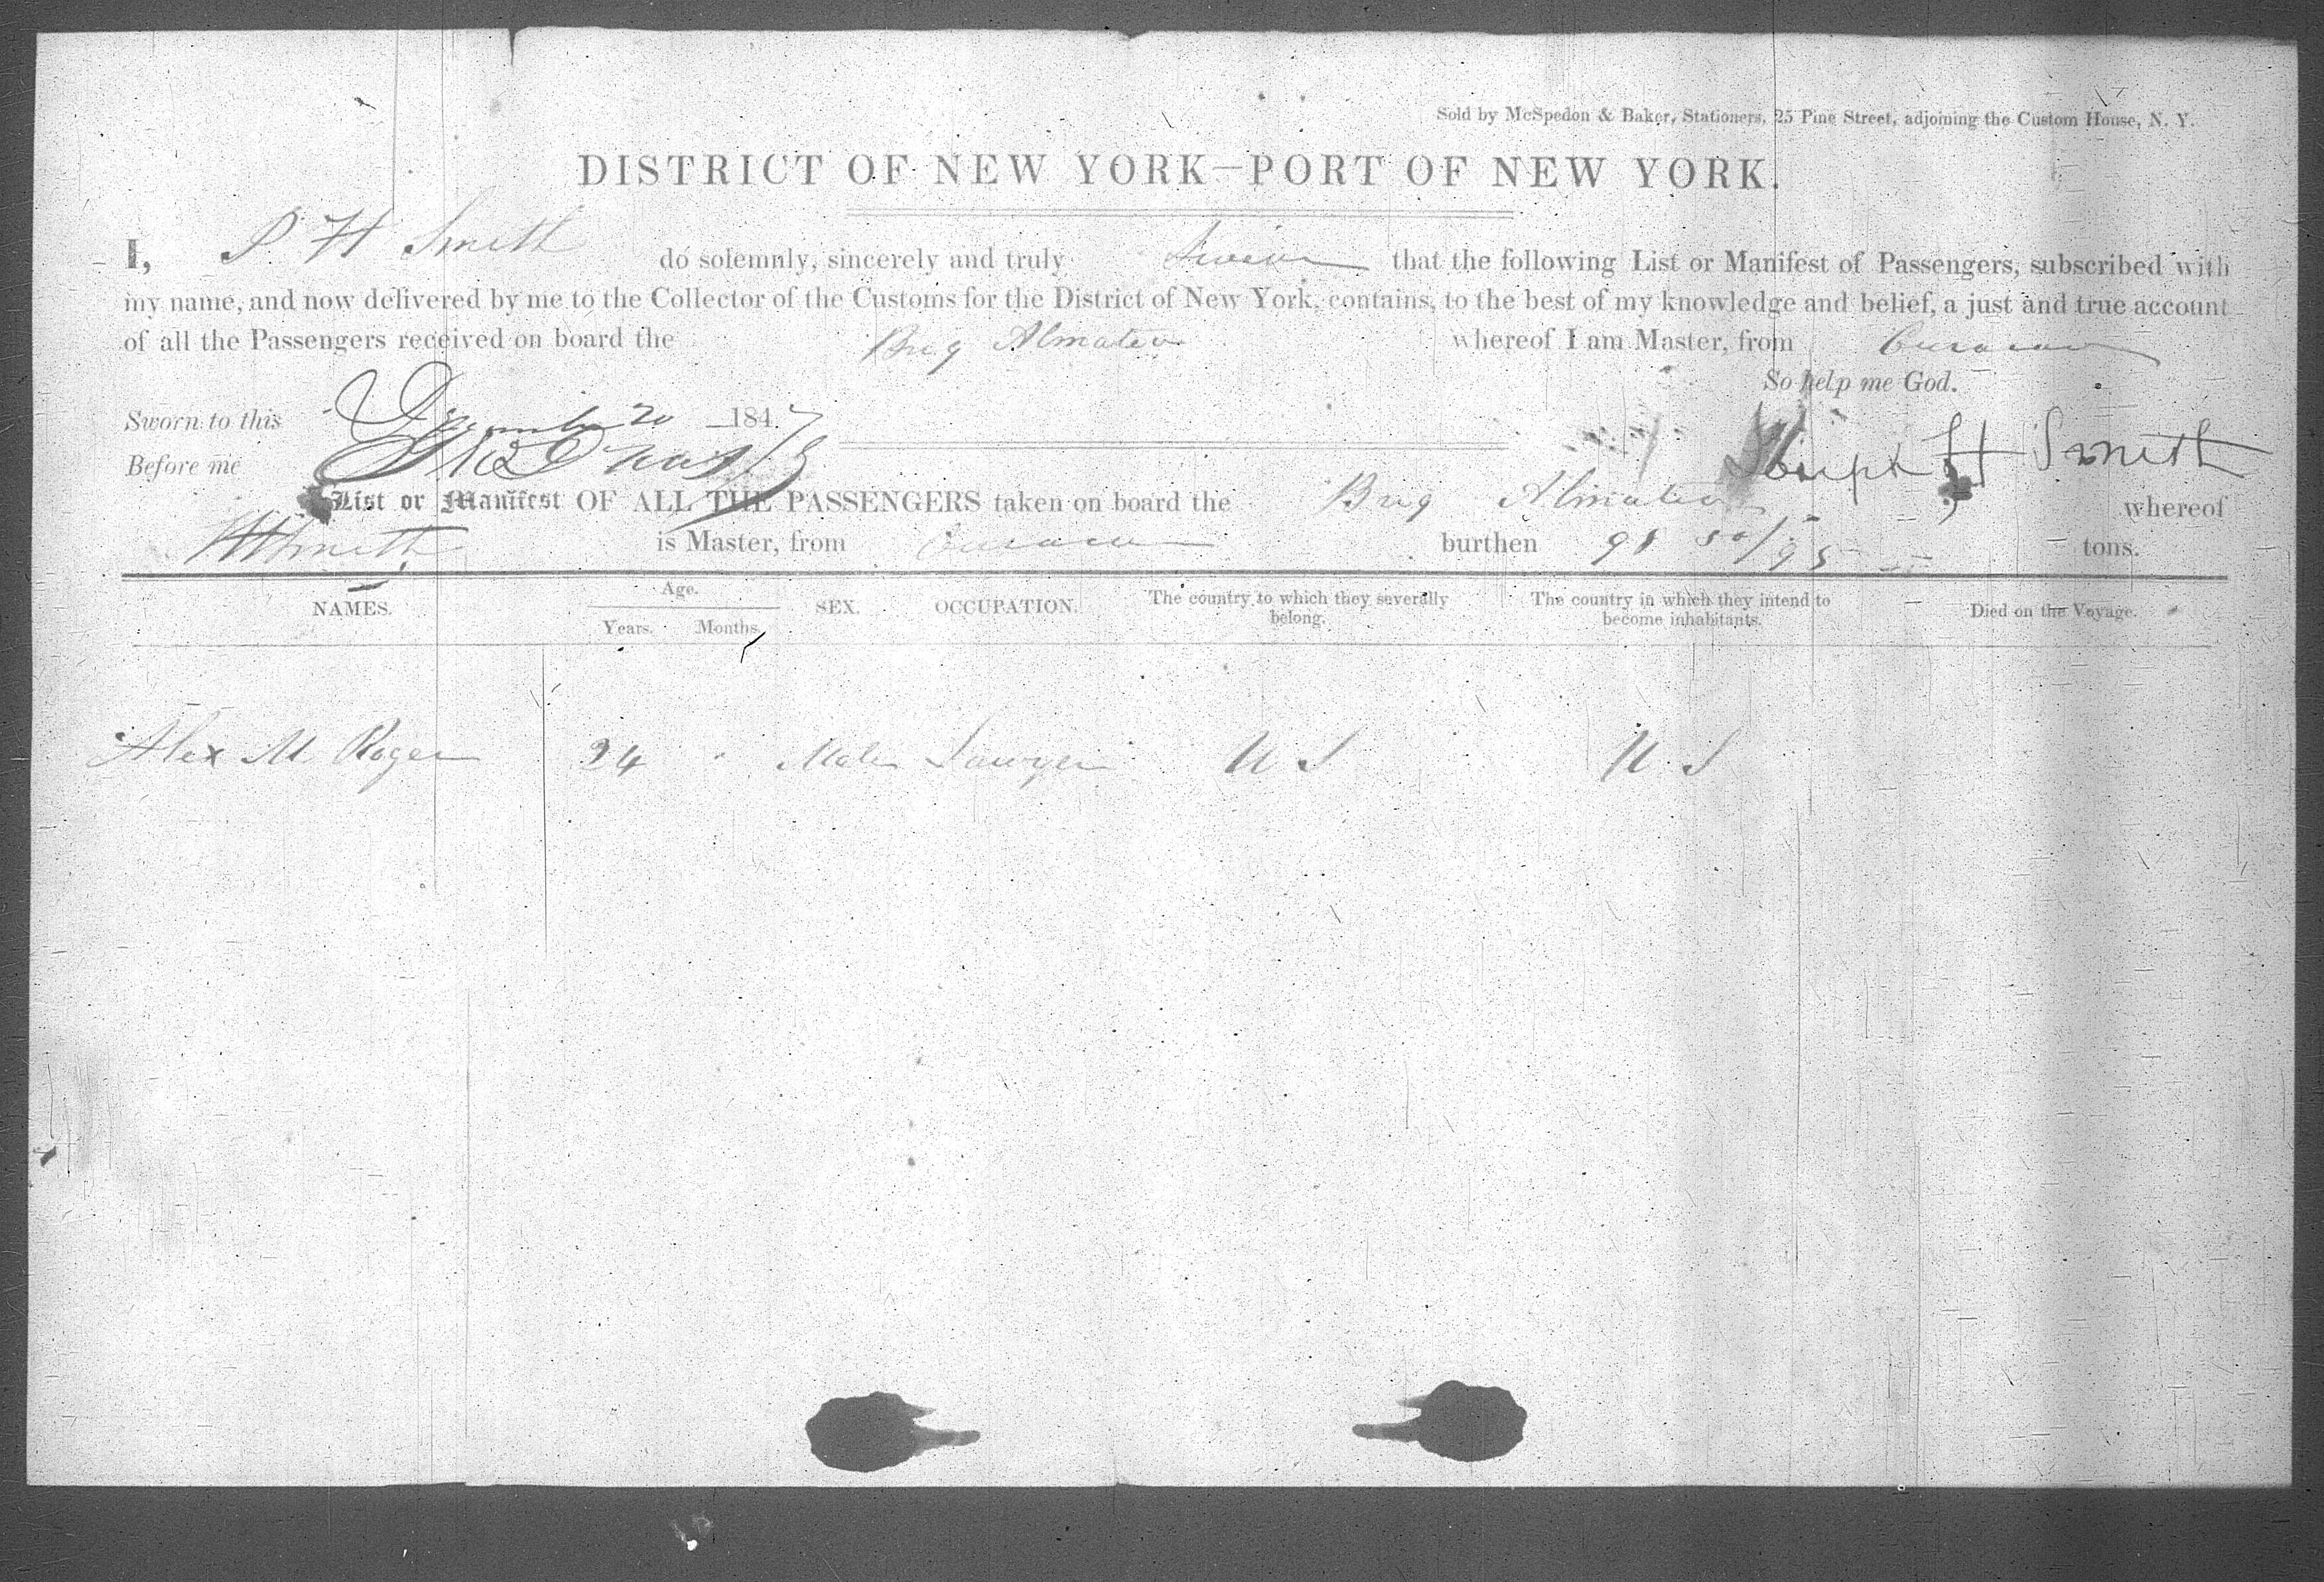 Sold by McSpedon & Baker, Stationers, 25 Pine Street, adjoining the Custom House, N. Y.
DISTRICT OF NEW YORK—PORT OF NEW YORK.
I, J. H Smith do solemnly, sincerely and truly Swear that the following List or Manifest of Passengers, subscribed with
my name, and now delivered by me to the Collector of the Customs for the District of New York, contains, to the best of my knowledge and belief, a just and true account
of all the Passengers received on board the Brig Almatea whereof I am Master, from Curacao
So help me God.
Sworn to this December 20 1847
Before me Joseph H Smith
List or Manifest OF ALL THE PASSENGERS taken on board the Brig Almatea whereof
Smith is Master, from Curacao burthen 98 50/95 tons.
NAMES. Age. Years. Months. SEX. OCCUPATION. The country to which they severally belong. The country in which they intend to become inhabitants. Died on the Voyage.
Alex M Roger 24 Male Lawyer U S U. S